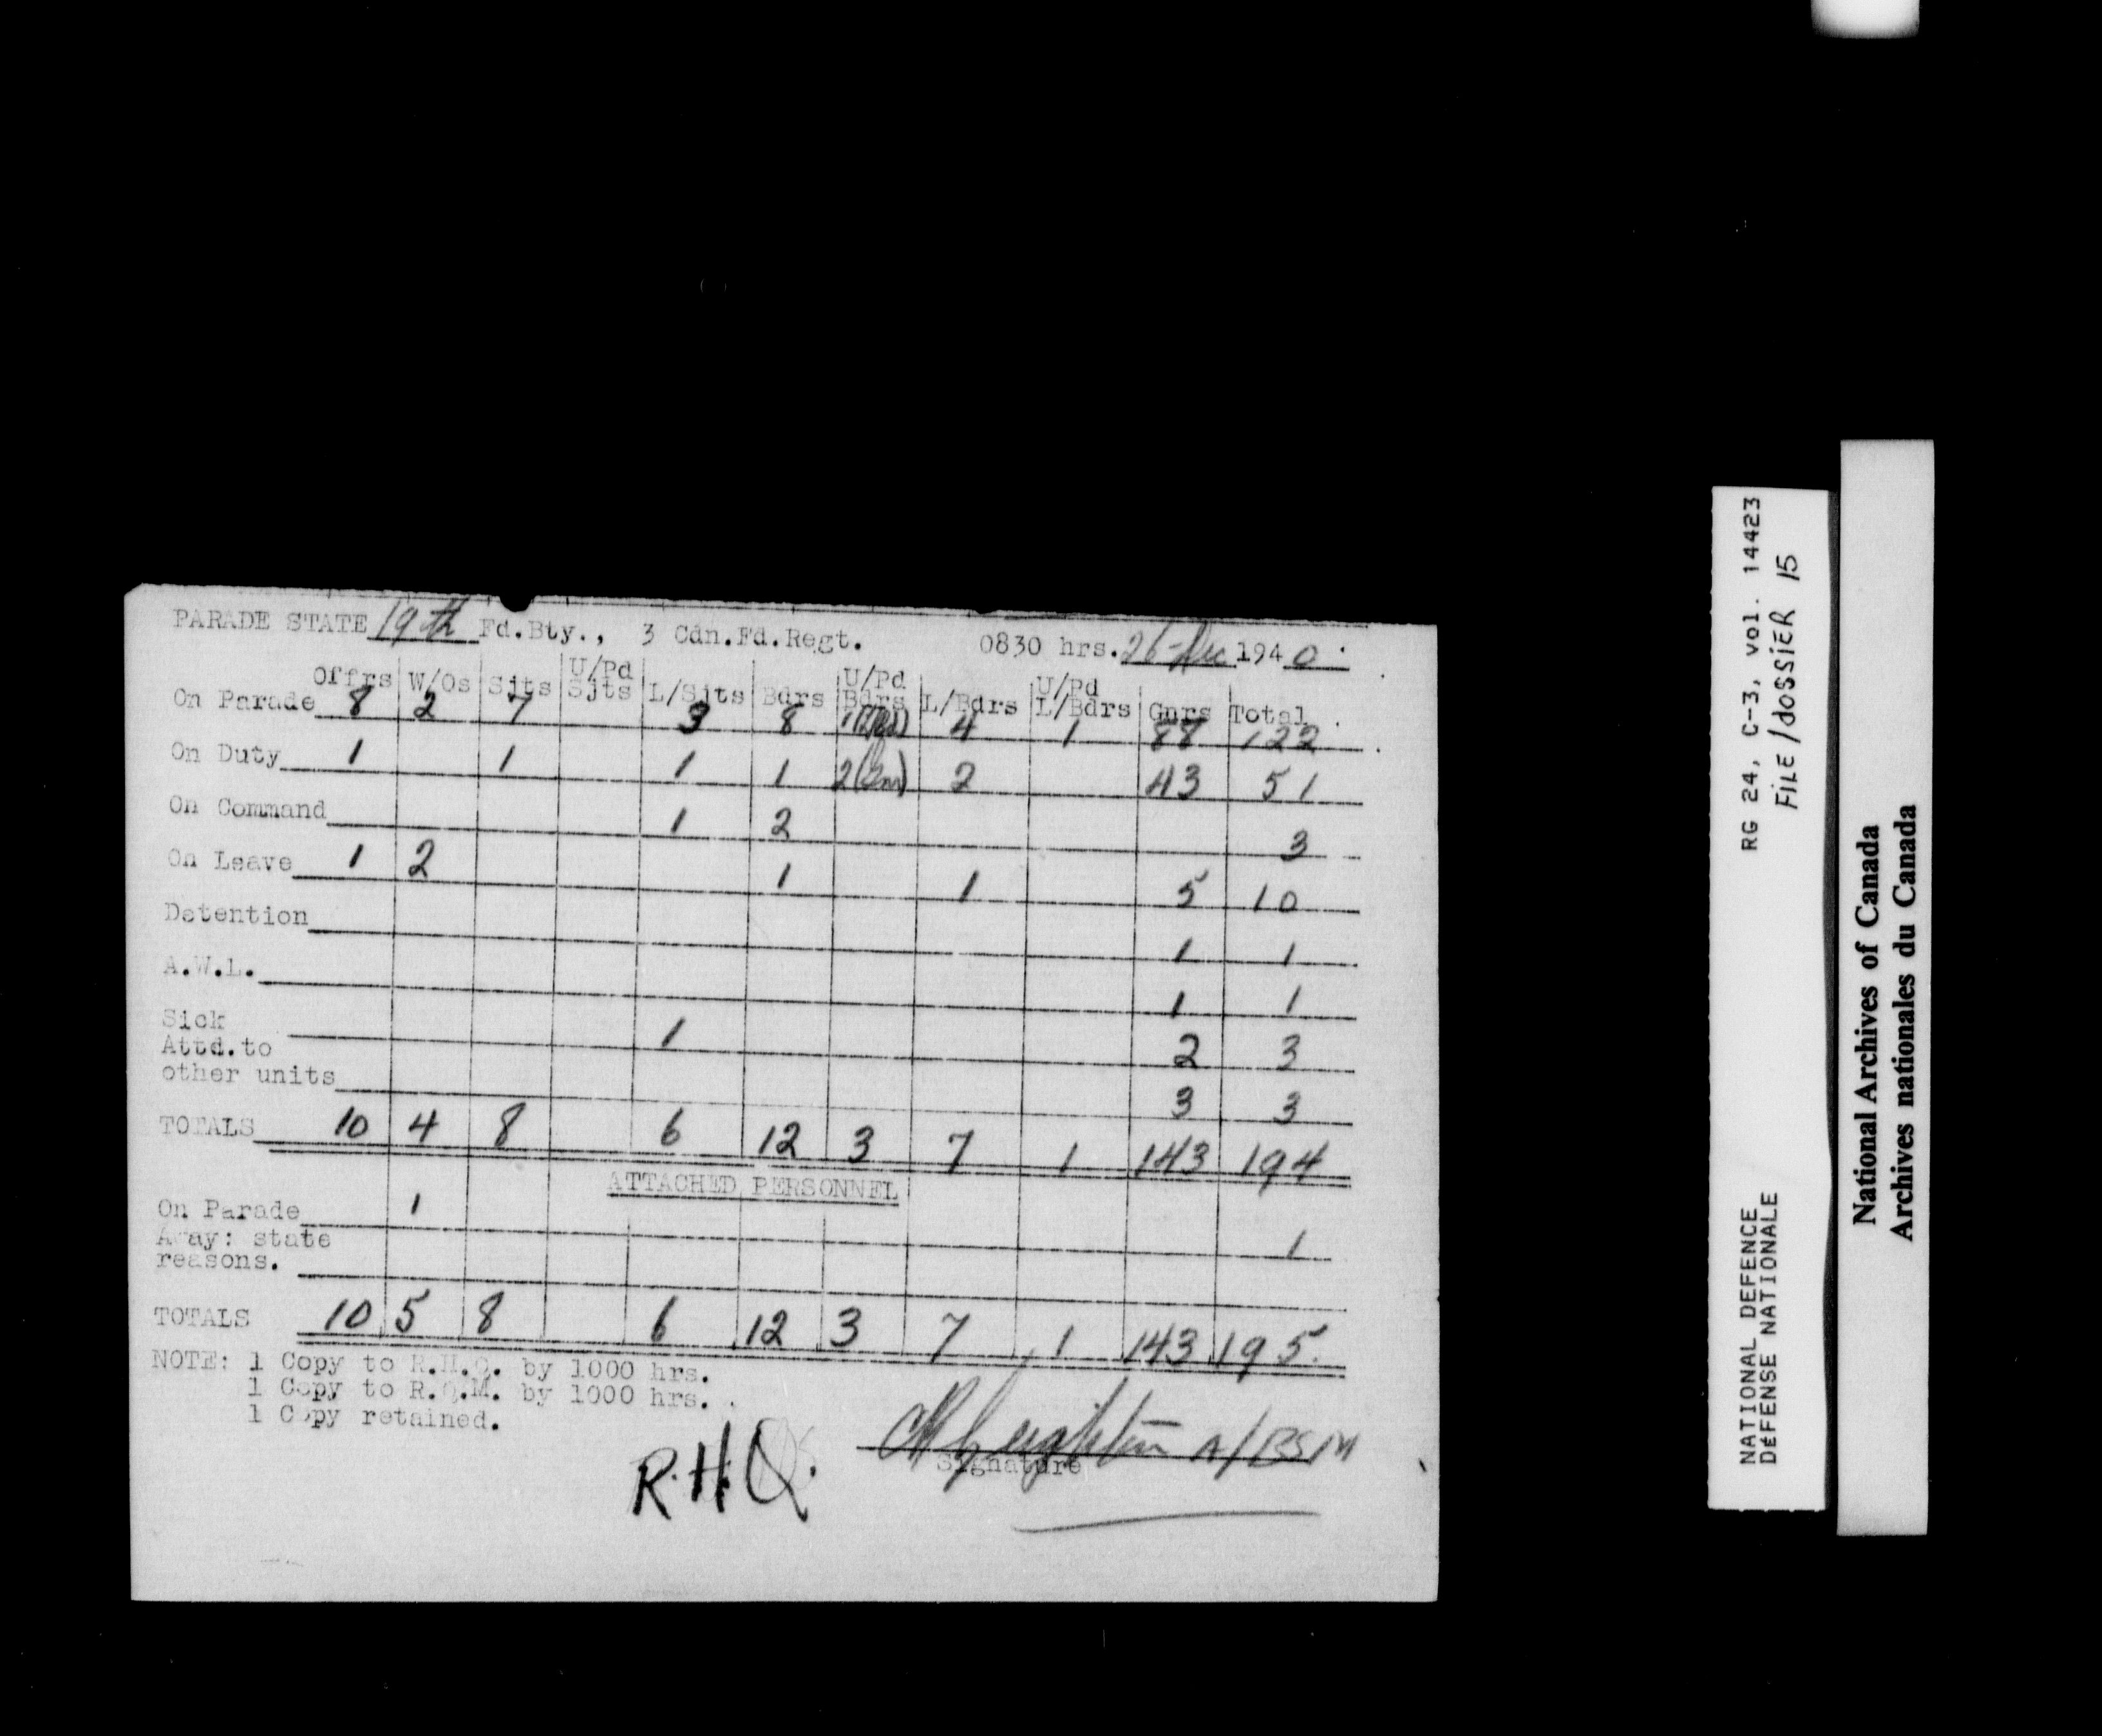 PARADE STATE 19th Fd.Bty., 3 Cdn.Fd.Regt. 0830 hrs. 26-Dec 1940
Offrs W/Os Sjts U/Pd Sjts L/Sjts Bdrs U/Pd Bdrs L/Bdrs U/Pd L/Bdrs Gnrs Total
On Parade 8 2 7 3 8 1 4 1 88 122
On Duty 1 1 1 1 2 2 43 51
On Command 1 2 3
On Leave 1 2 1 1 5 10
Detention 1 1
A.W.L. 1 1
Sick 1 2 3
Attd.to
other units 3 3
TOTALS 10 4 8 6 12 3 7 1 143 194
ATTACHED PERSONNEL
On Parade 1 1
Away: state
reasons.
TOTALS 10 5 8 6 12 3 7 1 143 195
NOTE: 1 Copy to R.H.Q. by 1000 hrs.
1 Copy to R.Q.M. by 1000 hrs.
1 Copy retained.
R.H.Q.
A/BSM
Signature
RG 24, C-3, vol. 14423
FILE/DOSSIER 15
NATIONAL DEFENCE
DÉFENSE NATIONALE
National Archives of Canada
Archives nationales du Canada